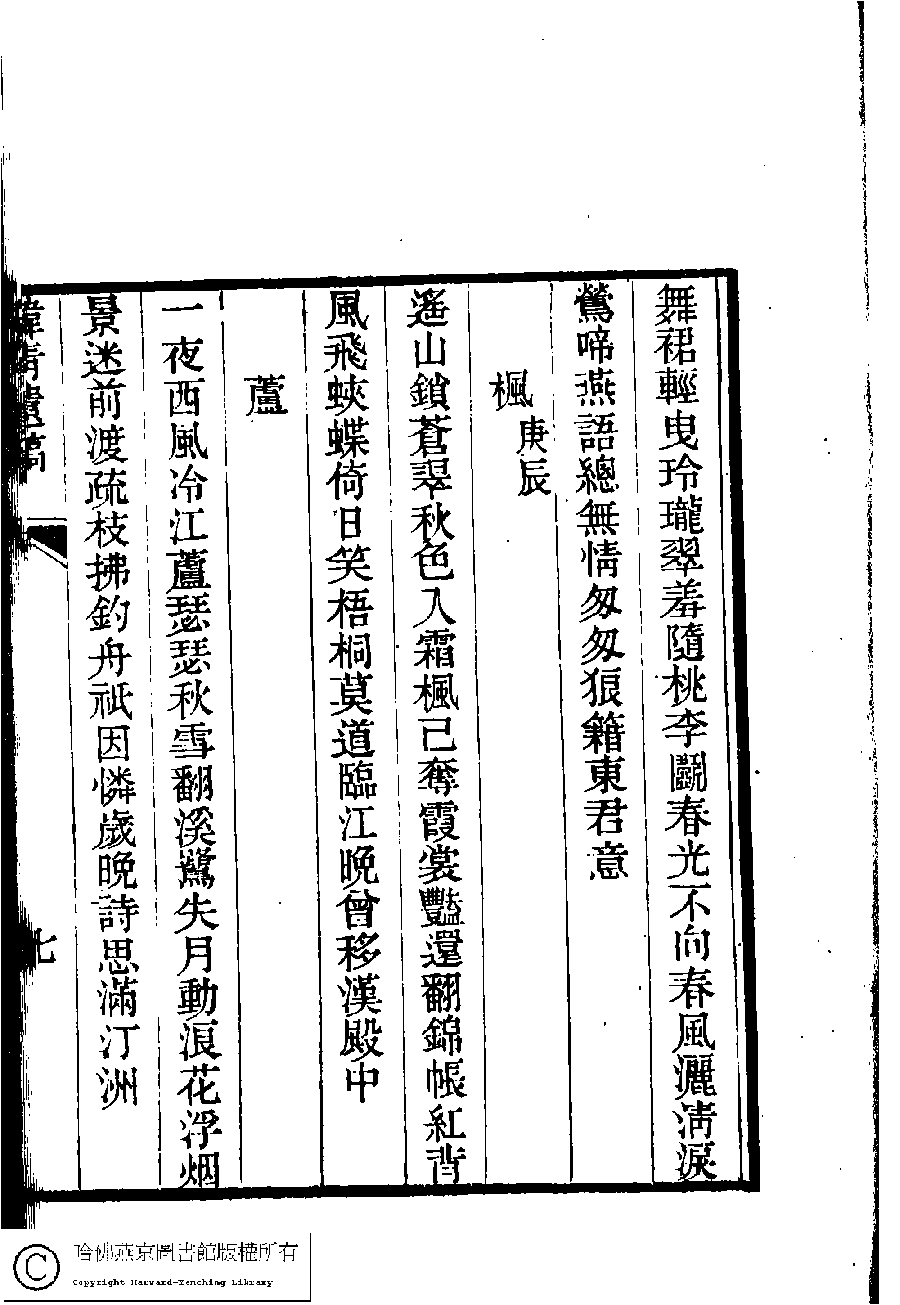 舞裙輕曳玲瓏翠羞隨桃李鬭春光不向春風灑清淚
鶯啼燕語總無情匆匆狼籍東君意
楓 庚辰
遙山鎖蒼翠秋色入霜楓已奪霞裳豔還翻錦帳紅背
風飛蛺蝶倚日笑梧桐莫道臨江晚曾移漢殿中
蘆
一夜西風冷江蘆瑟瑟秋雪翻溪鷺失月動浪花浮烟
景迷前渡疏枝拂釣舟祇因憐歲晚詩思滿汀洲
遺稿
七
哈佛燕京圖書館版權所有
Copyright Harvard-Yenching Library